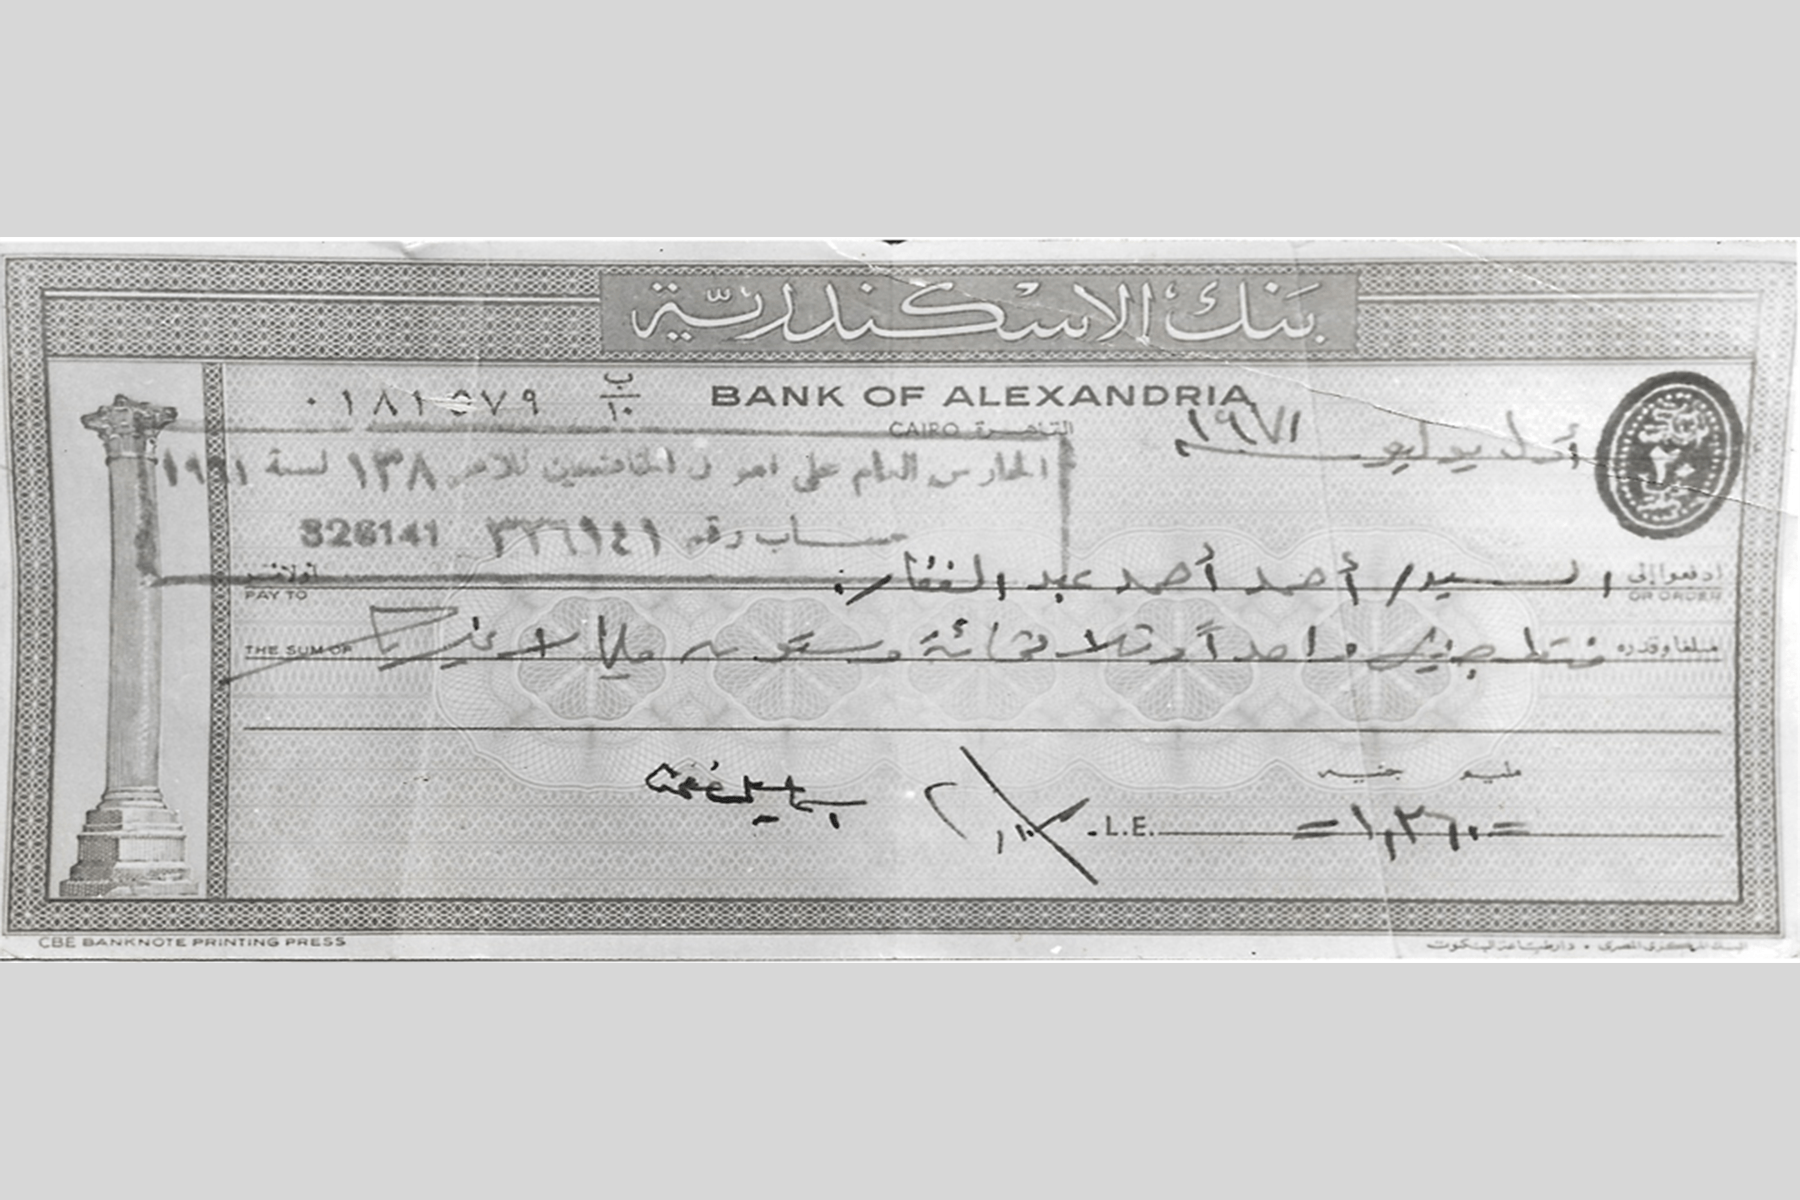 بنك الإسكندرية
٠١٨١٥٧٩ ب/١٠ BANK OF ALEXANDRIA
CAIRO القاهرة
أول يوليو ١٩٧١
الحارس العام على أموال الخاضعين للأمر ١٣٨ لسة ١٩٦١
حساب رقم ٣٣٦١٤١ 326141
ادفعوا إلى السيد/ أحمد أحمد عبد الغفار أو لأمر
PAY TO OR ORDER
مبلغا وقدره فقط جنيه واحداً وثلاثمائة وستون مليما لا غير
THE SUM OF
مليم جنيه
L.E. =١,٣٦٠=
٢٠
CBE BANKNOTE PRINTING PRESS
البنك المركزى المصرى • دار طباعة البنكنوت